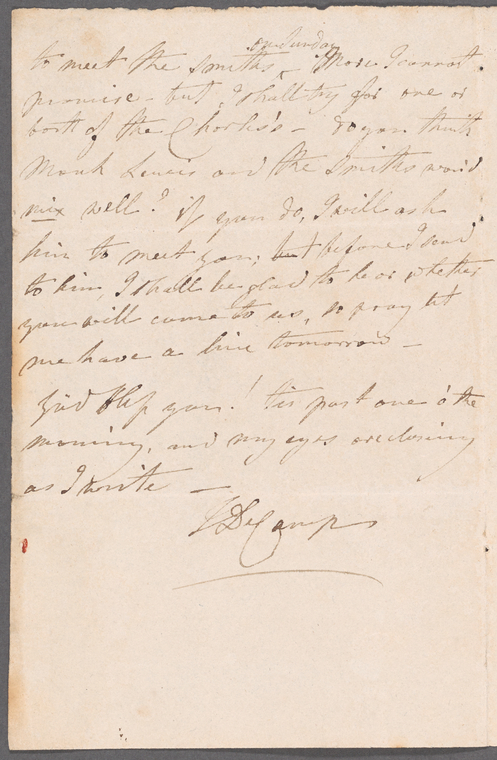 on Sunday
to meet the Smiths ^ More I cannot
promise - but, I shall try for one or
both of the Charles's - do you think
Monk Lewis and the Smiths would
mix well? if you do, I will ask
him to meet you; but before I send
to him, I shall be glad to hear whether
you will come to us, so pray let
me have a line tomorrow -
God bless you! tis past one o' the
morning, and my eyes are closing
as I write -
DeCamp